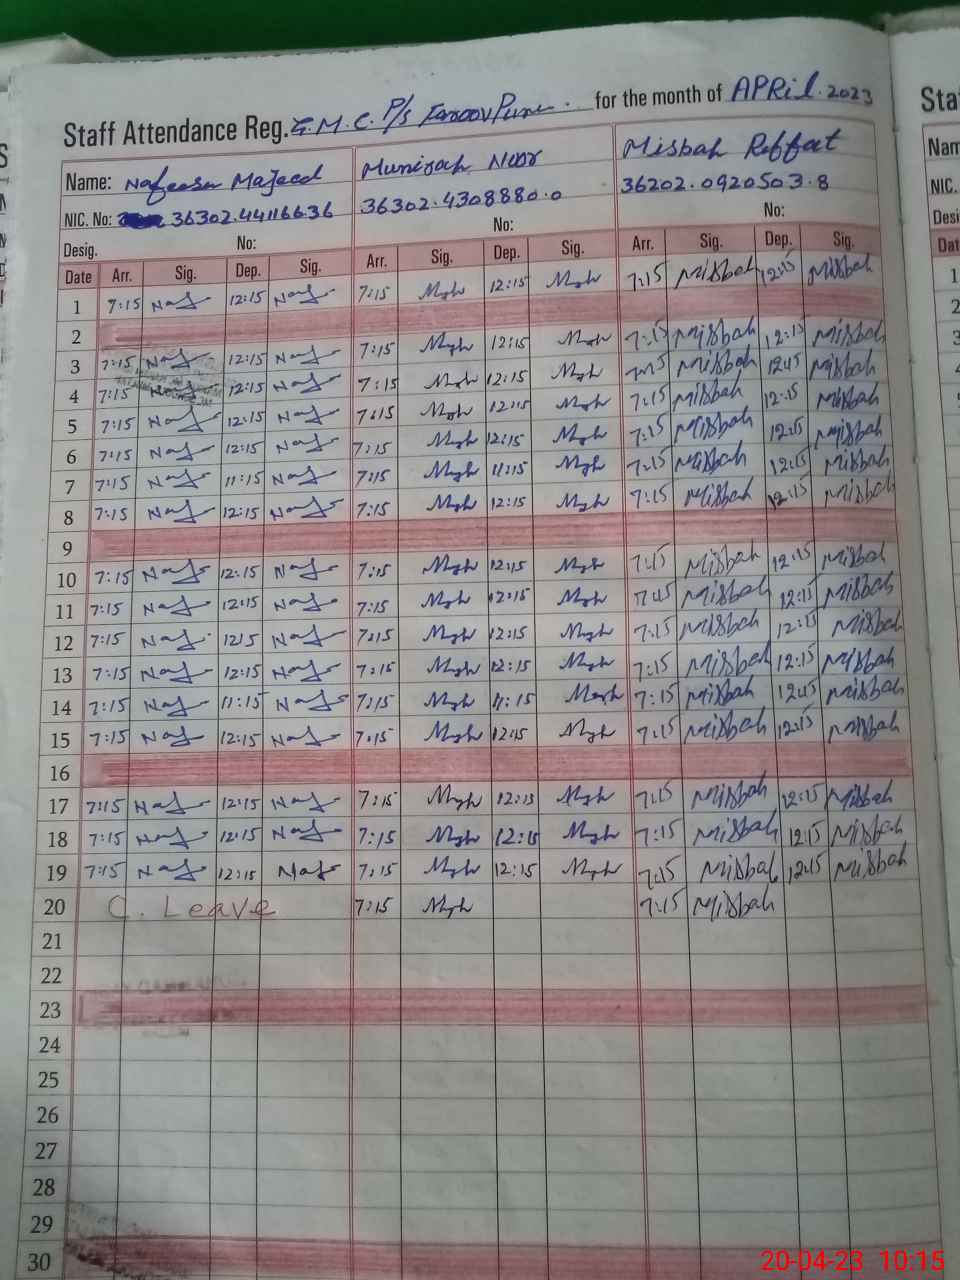 Staff Attendance Reg. G.M.C. P/s FarooqPura. for the month of APRil. 2023
Name: Nafeesa Majeed Munizah Noor Misbah Reffat
NIC. No: 36302.44116636 36302.4308880.0 36202.0920503.8
Desig. No: No: No:
Date Arr. Sig. Dep. Sig. Arr. Sig. Dep. Sig. Arr. Sig. Dep. Sig.
1 7:15 Naf 12:15 Naf 7:15 12:15 7:15 Misbah 12:15 Misbah
2
3 7:15 Naf 12:15 Naf 7:15 12:15 7:15 Misbah 12:15 Misbah
4 7:15 Naf 12:15 Naf 7:15 12:15 7:15 Misbah 12:15 Misbah
5 7:15 Naf 12:15 Naf 7:15 12:15 7:15 Misbah 12:15 Misbah
6 7:15 Naf 12:15 Naf 7:15 12:15 7:15 Misbah 12:15 Misbah
7 7:15 Naf 11:15 Naf 7:15 11:15 7:15 Misbah 12:15 Misbah
8 7:15 Naf 12:15 Naf 7:15 12:15 7:15 Misbah 12:15 Misbah
9
10 7:15 Naf 12:15 Naf 7:15 12:15 7:15 Misbah 12:15 Misbah
11 7:15 Naf 12:15 Naf 7:15 12:15 7:15 Misbah 12:15 Misbah
12 7:15 Naf 1215 Naf 7:15 12:15 7:15 Misbah 12:15 Misbah
13 7:15 Naf 12:15 Naf 7:15 12:15 7:15 Misbah 12:15 Misbah
14 7:15 Naf 11:15 Naf 7:15 11:15 7:15 Misbah 12:15 Misbah
15 7:15 Naf 12:15 Naf 7:15 12:15 7:15 Misbah 12:15 Misbah
16
17 7:15 Naf 12:15 Naf 7:15 12:15 7:15 Misbah 12:15 Misbah
18 7:15 Naf 12:15 Naf 7:15 12:15 7:15 Misbah 12:15 Misbah
19 7:15 Naf 12:15 Naf 7:15 12:15 7:15 Misbah 12:15 Misbah
20 C. Leave 7:15 7:15 Misbah
21
22
23
24
25
26
27
28
29
30
20-04-23 10:15